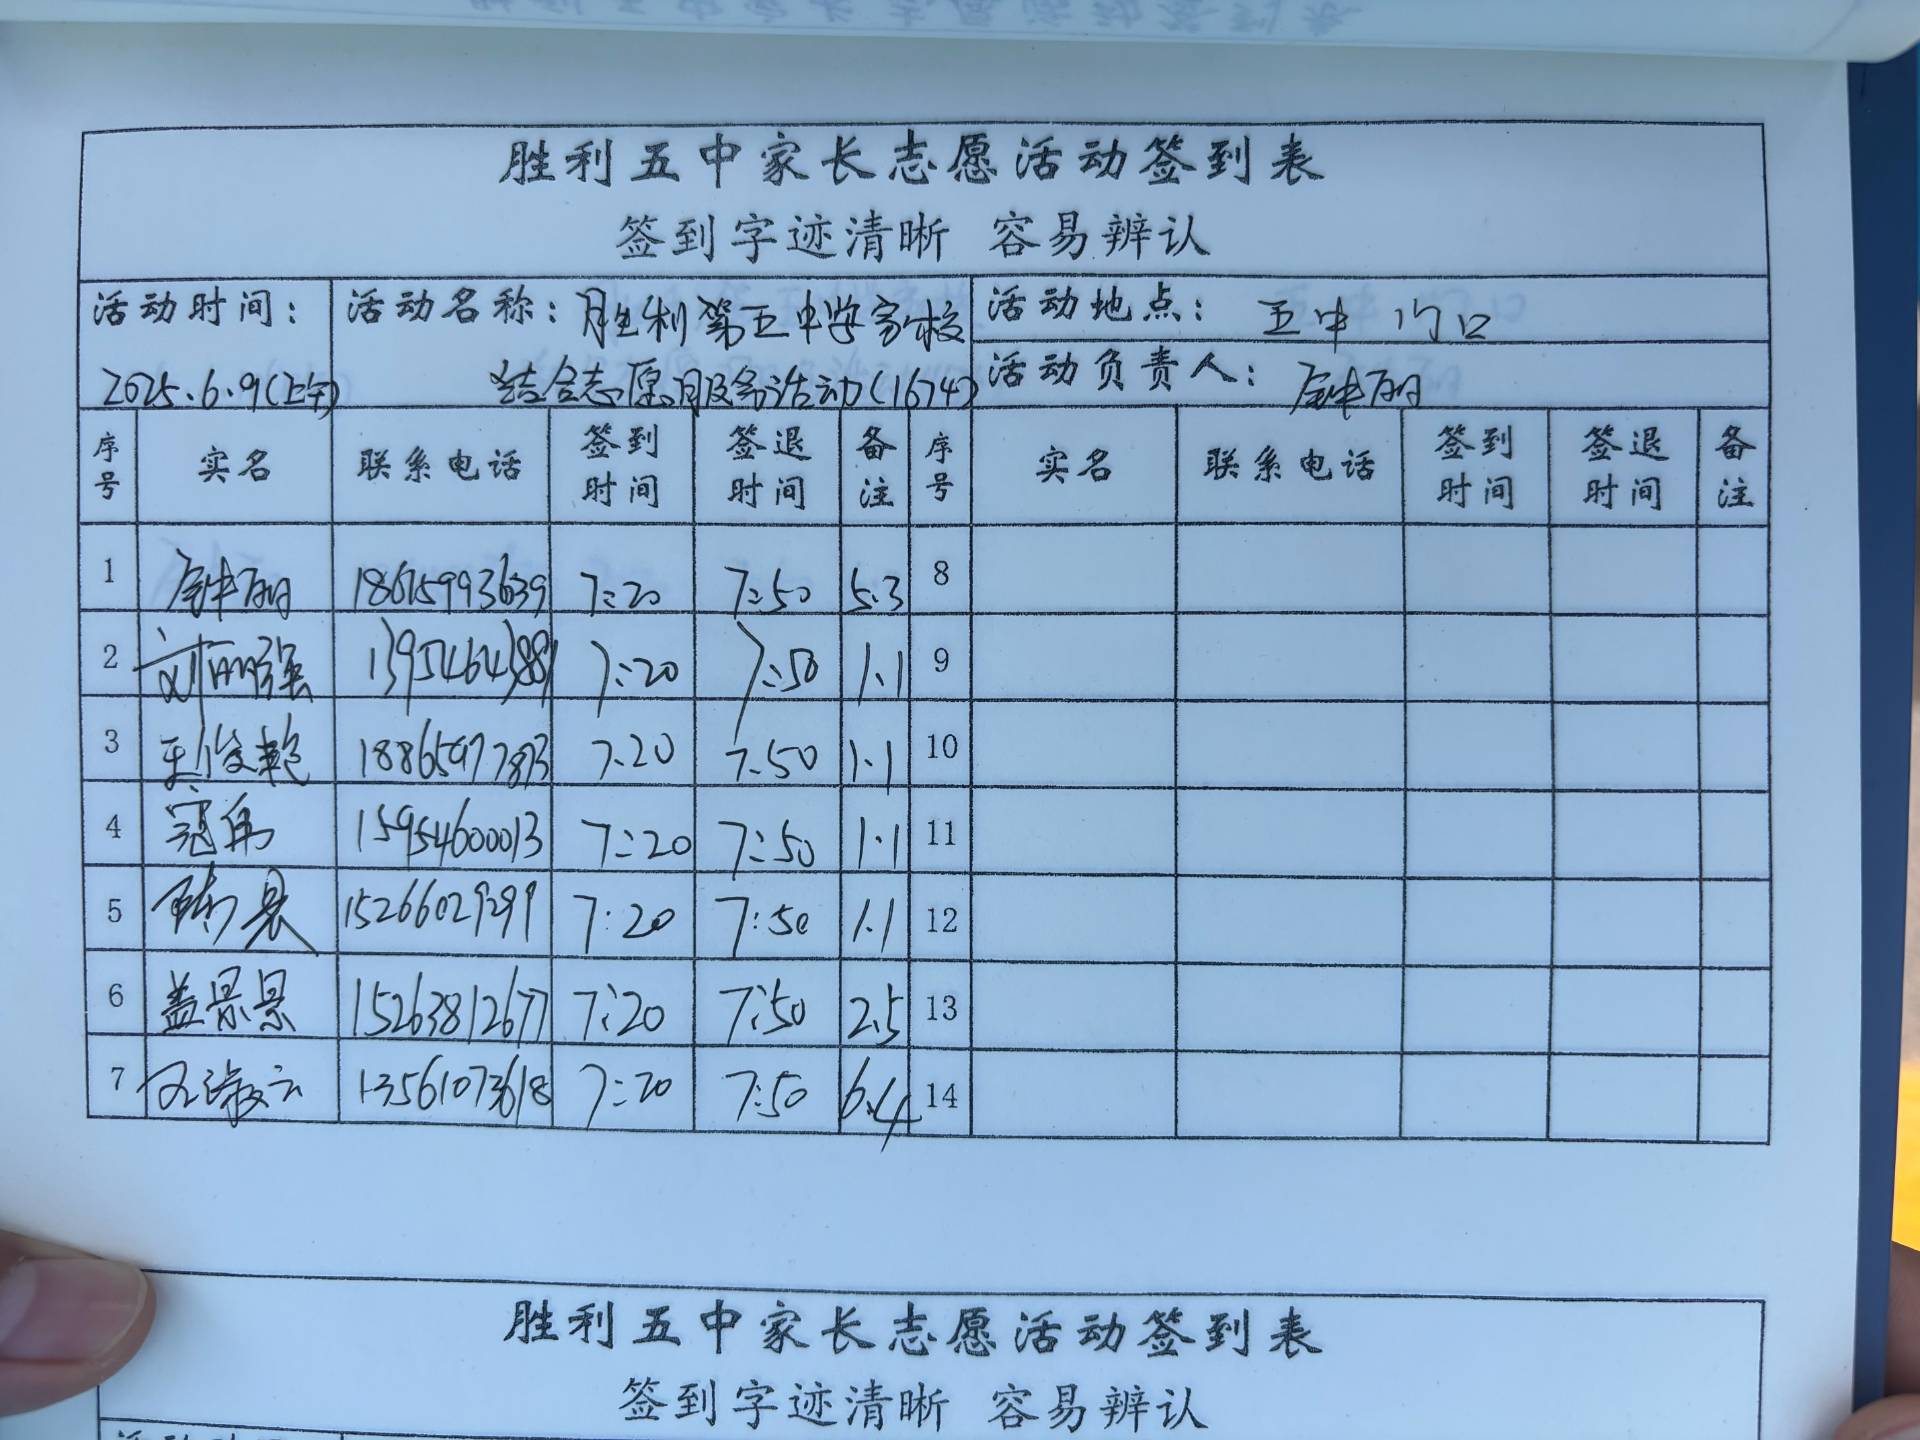 胜利五中家长志愿活动签到表
签到字迹清晰 容易辨认
活动时间： 2025.6.9(上午)
活动名称：胜利第五中学家校
结合志愿服务活动(1674)
活动地点： 五中门口
活动负责人： 钟丽
序号 实名 联系电话 签到时间 签退时间 备注 序号 实名 联系电话 签到时间 签退时间 备注
1 钟丽 18615993639 7:20 7:50 5.3 8
2 刘丽强 13954643889 7:20 7:50 1.1 9
3 王俊艳 18865977873 7:20 7:50 1.1 10
4 冠伟 15954600013 7:20 7:50 1.1 11
5 15266029299 7:20 7:50 1.1 12
6 盖景景 15263812677 7:20 7:50 2.5 13
7 文淑云 13561073618 7:20 7:50 6.4 14
胜利五中家长志愿活动签到表
签到字迹清晰 容易辨认